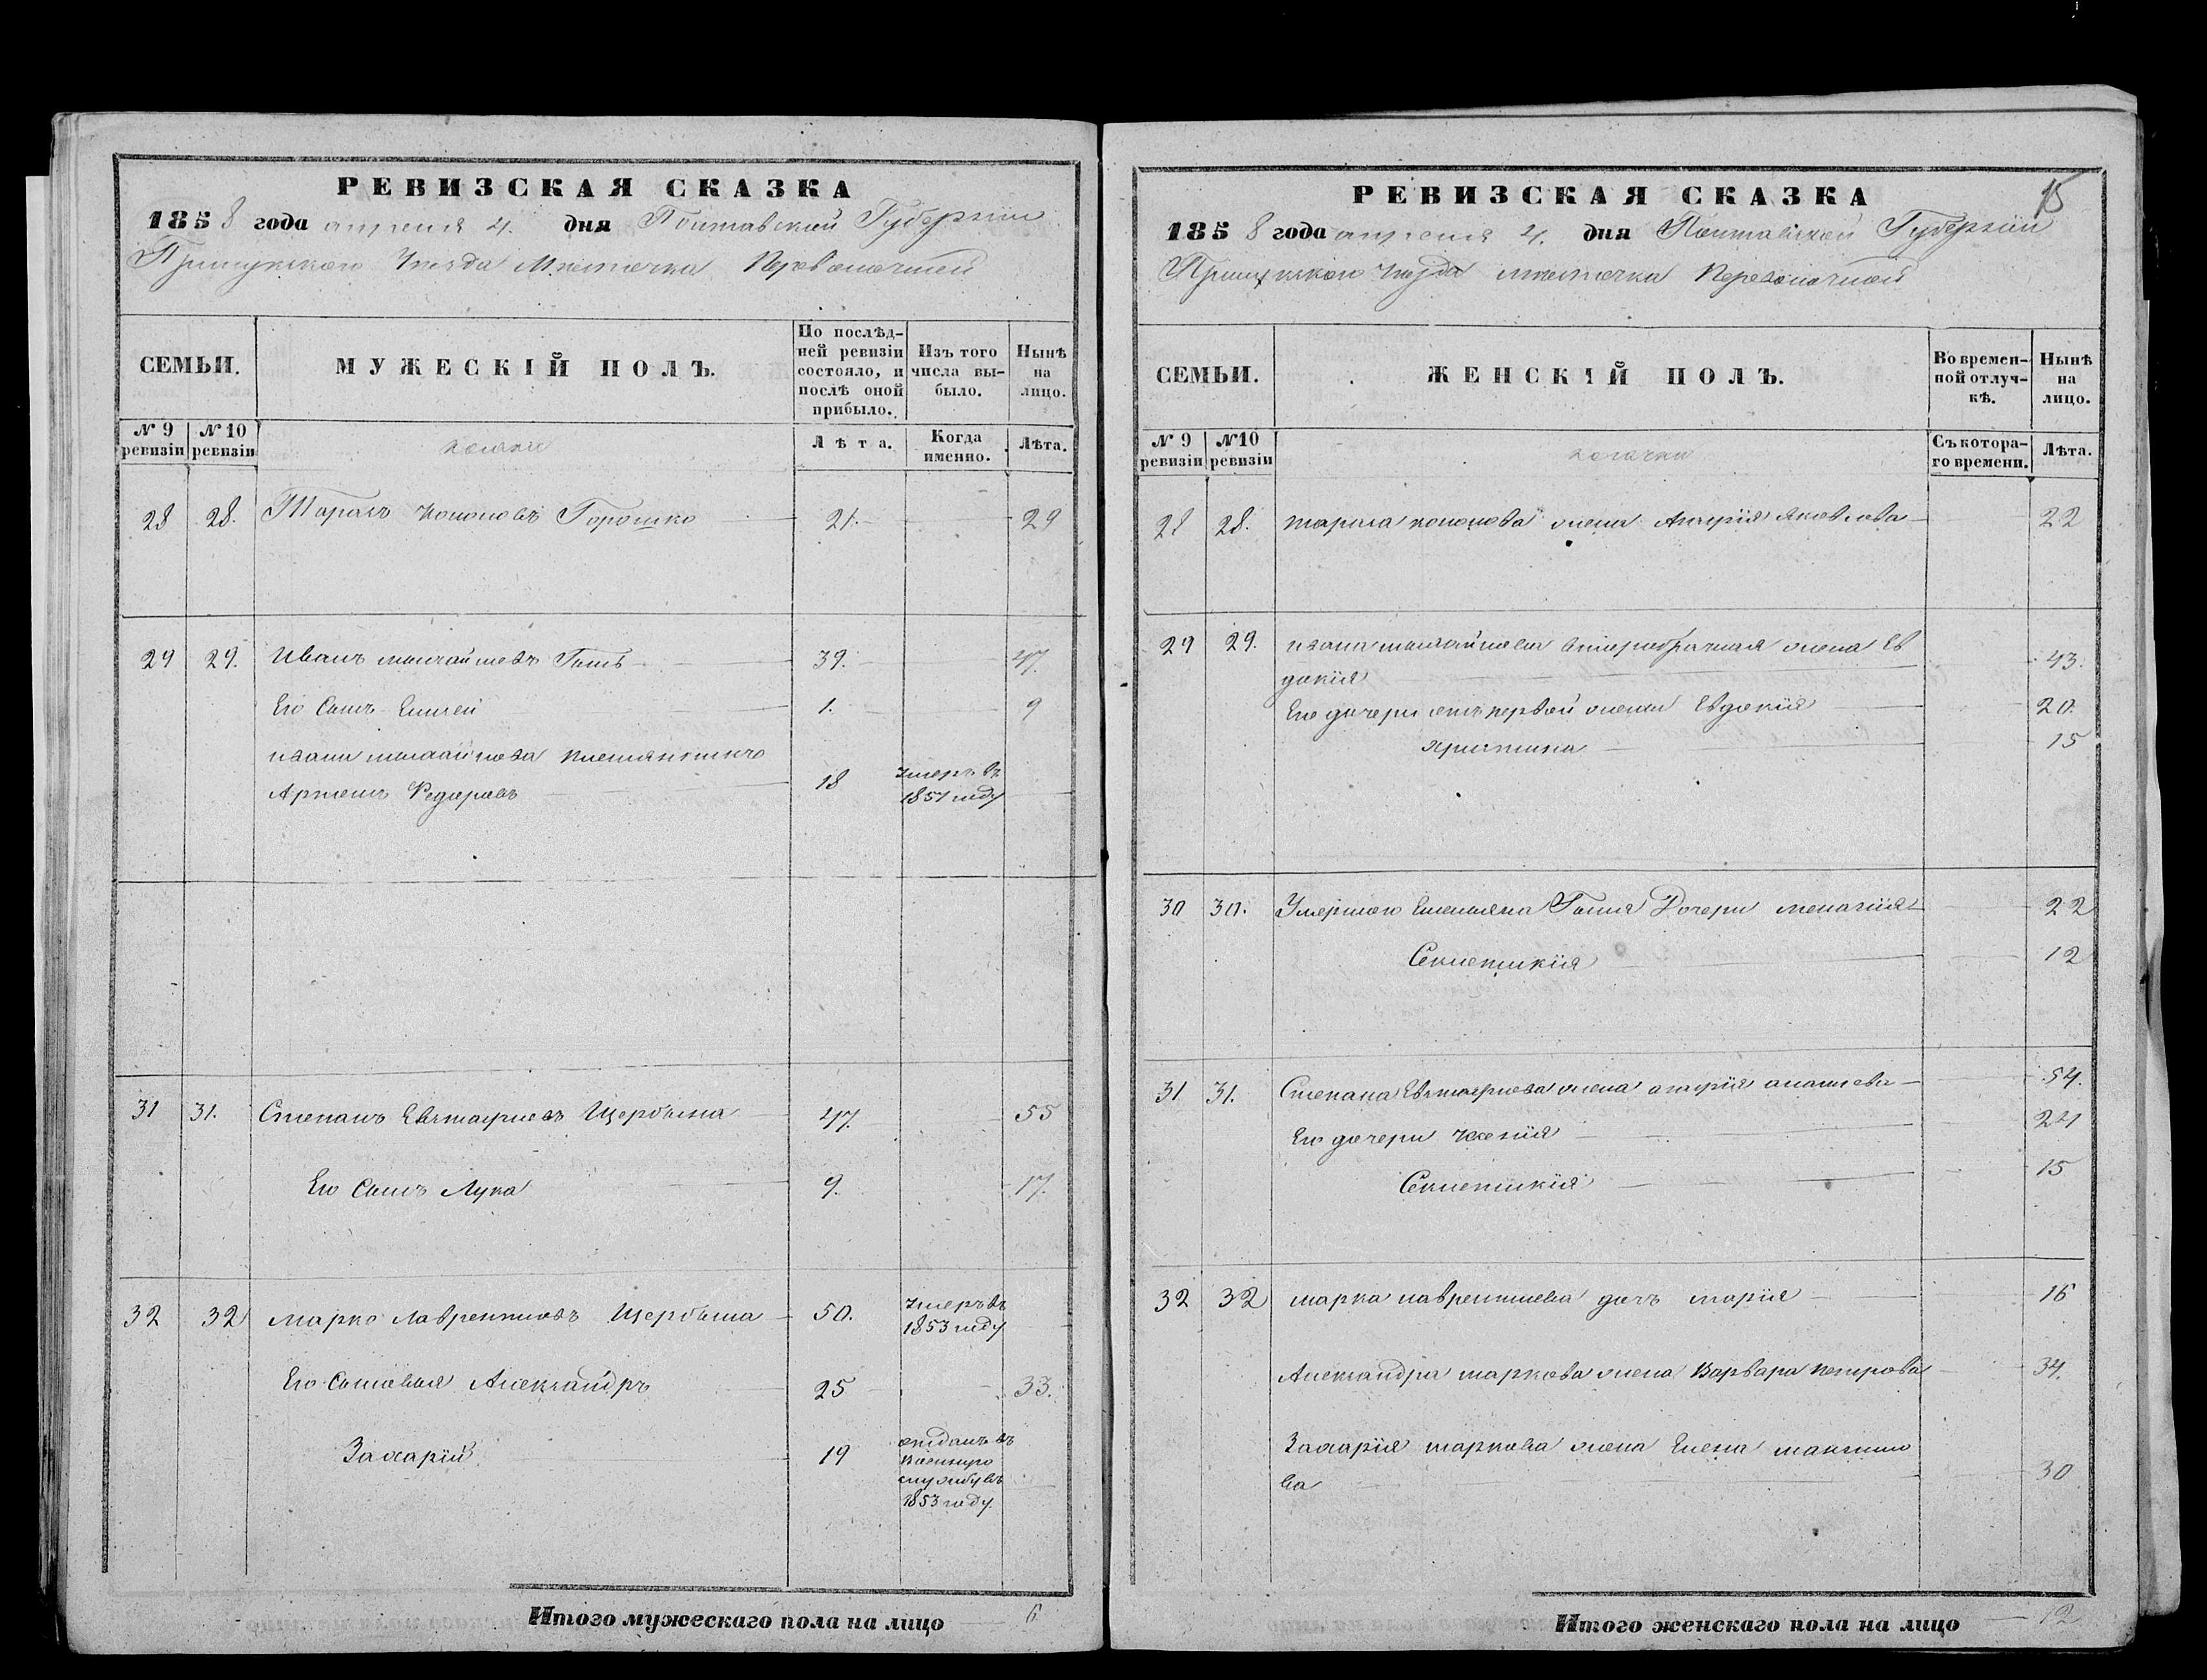 РЕВИЗСКАЯ СКАЗКА
1858 года апреля 4. дня Полтавской Губернии
Прилукского Уезда Местечка Переволочной
СЕМЬИ.
МУЖЕСКІЙ ПОЛЪ.
По послѣд-
ней ревизіи
состояло, и
послѣ оной
прибыло.
Изъ того
числа вы-
было.
Нынѣ
на
лицо.
№ 9
ревизіи
№ 10
ревизіи
козаки
Лѣта.
Когда
именно.
Лѣта.
28 28. Тарасъ Кононовъ Горошко 21. 29
29 29. Иванъ михайловъ 39. 47.
Его Сынъ Елисей 1. 9
ивана михайлова племянникъ
Артемъ Федоровъ 18
умеръ въ
1851 году
31 31. Степанъ Евстафиевъ Щербына 47. 55
Его Сынъ Лука 9. 17.
32 32 марко Лаврентиевъ Щербына 50.
умеръ въ
1853 году
Его Сыновья Александръ 25 33.
Захарій 19
отданъ въ
военную
службу въ
1853 году
Итого мужескаго пола на лицо 6
15
РЕВИЗСКАЯ СКАЗКА
1858 года апреля 4. дня Полтавской Губернии
Прилукского Уезда местечка Переволочной
СЕМЬИ.
ЖЕНСКІЙ ПОЛЪ.
Во времен-
ной отлуч-
кѣ.
Нынѣ
на
лицо.
№ 9
ревизіи
№ 10
ревизіи
козачки
Съ котора-
го времени.
Лѣта.
28 28. тараса кононова жена Агафія Яковлева 22
29 29. ивана михайлова второбрачная жена Ев
докія 43.
Его дочери отъ первой жены Евдокія 20.
христина 15
30 30. Умершого Емельяна Дочери меланія 22
Синклитикія 12
31 31. Степана Евстафиева жена агафія 54.
Его дочери 24
15
32 32 марка лаврентиева дочь марія 16
Александра маркова жена Варвара петрова 34.
Захарія маркова жена Елена максимо
ва 30
Итого женскаго пола на лицо 12